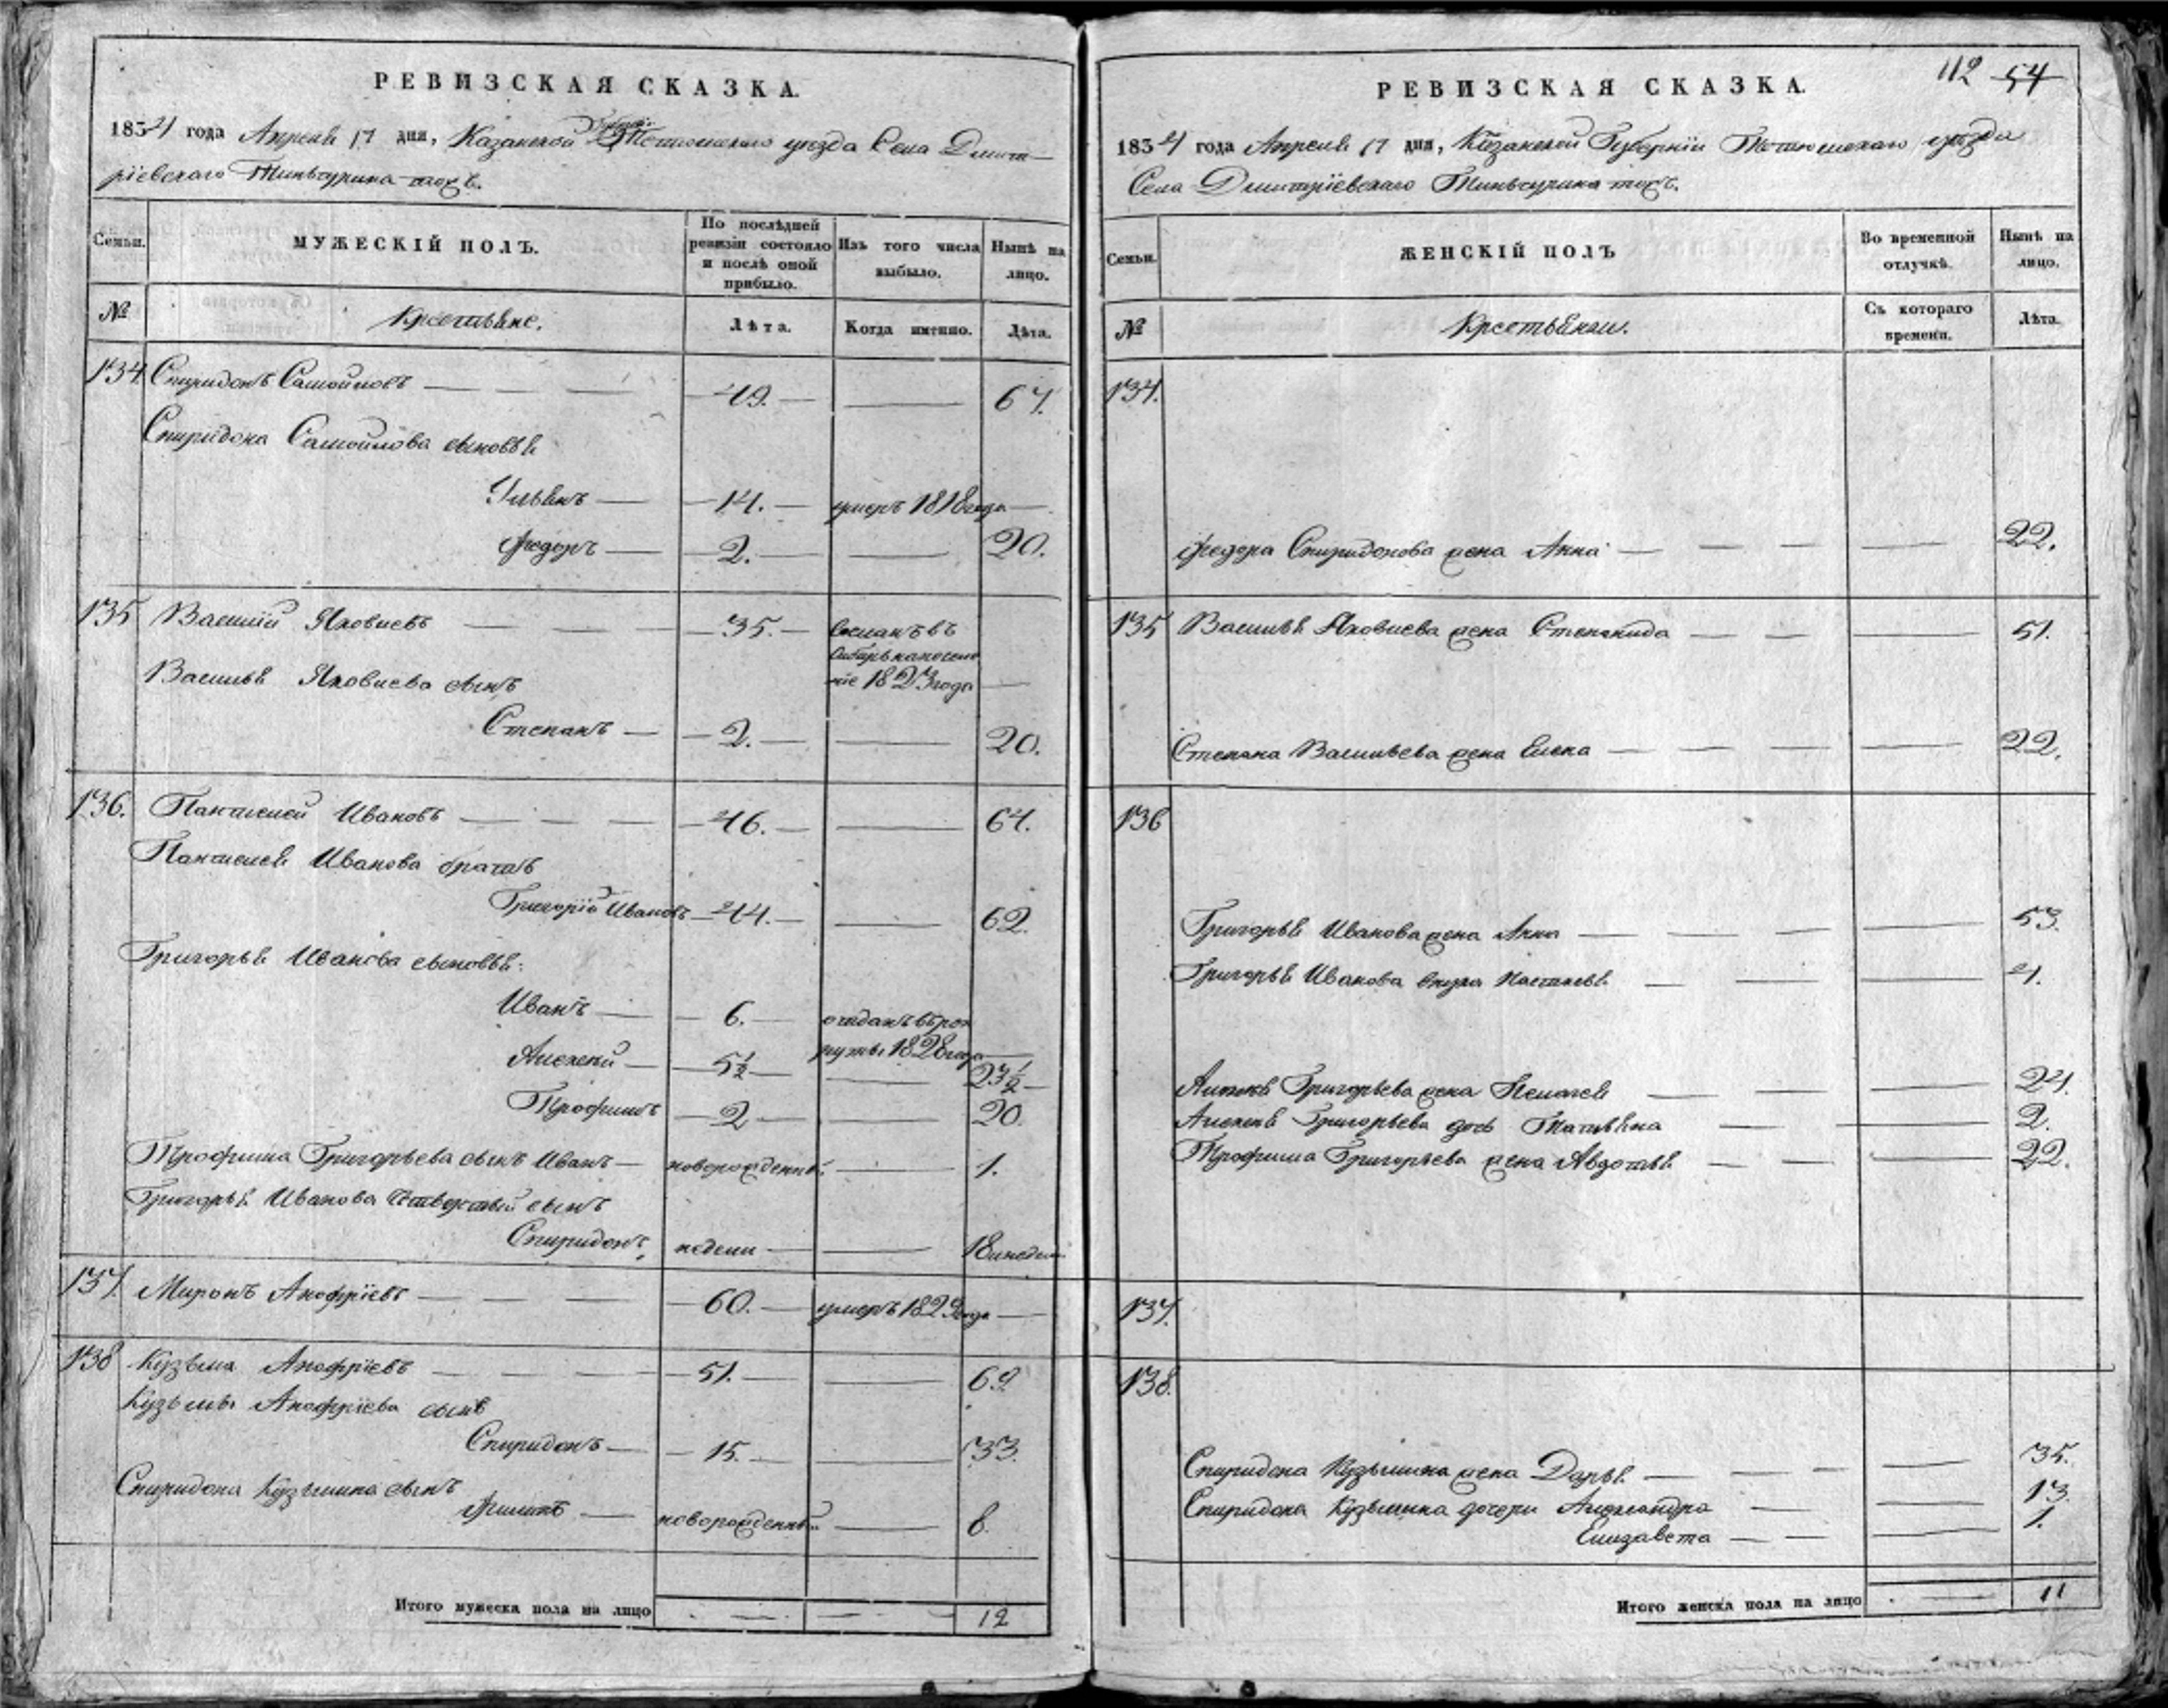 РЕВИЗСКАЯ СКАЗКА.
1834 года Апреля 17 дня, Казанской Губернiи Тетюшскаго уезда Села Дмит-
рiевскаго тожъ.
Семьи.
МУЖЕСКІЙ ПОЛЪ.
По послѣдней ревизіи состояло и послѣ оной прибыло.
Изъ того числа выбыло.
Нынѣ на лицо.
№
Крестьяне.
Лѣта.
Когда именно.
Лѣта.
134 Спиридонъ Самойловъ 49. 67.
Спиридона Самойлова сыновья
14. умеръ 1818 года
Федоръ 2. 20.
135 Василій Яковлевъ 35. Сосланъ въ
Сибирь на поселе
ніе 1823 года
Василья Яковлева сынъ
Степанъ 2. 20.
136. Пантелей Ивановъ 46. 64.
Пантелея Иванова братъ
Григорій Ивановъ 44. 62.
Григорья Иванова сыновья:
Иванъ 6. отданъ въ рек
руты 1828 года
Алексей 5½ 23½
Трофимъ 2 20.
Трофима Григорьева сынъ Иванъ новорожденный 1.
Григорья Иванова четвертый сынъ
Спиридонъ, недели 18 недель
137. Миронъ Анофріевъ 60. умеръ 1829 года
138 Кузьма Анофріевъ 51. 69.
Кузьмы Анофріева сынъ
Спиридонъ 15. 33.
Спиридона Кузьмина сынъ
Филипъ новорожденный 6.
Итого мужеска пола на лицо 12
112 54
РЕВИЗСКАЯ СКАЗКА.
1834 года Апреля 17 дня, Казанской Губерніи Тетюшскаго уезда
Села Дмитріевскаго тожъ.
Семьи.
ЖЕНСКІЙ ПОЛЪ
Во временной отлучкѣ.
Нынѣ на лицо.
№
Крестьянки.
Съ котораго времени.
Лѣта.
134.
Федора Спиридонова жена Анна 22.
135 Василья Яковлева жена Степанида 51.
Степана Васильева жена Елена 22.
136
Григорья Иванова жена Анна 53.
Григорья Иванова внука Настасья 4.
Алексея Григорьева жена Пелагея 24.
Алексея Григорьева дочь Татьяна 2.
Трофима Григорьева жена Авдотья 22.
137.
138.
Спиридона Кузьмина жена Дарья 35.
Спиридона Кузьмина дочери Александра 13.
Елизавета 1.
Итого женска пола на лицо 11